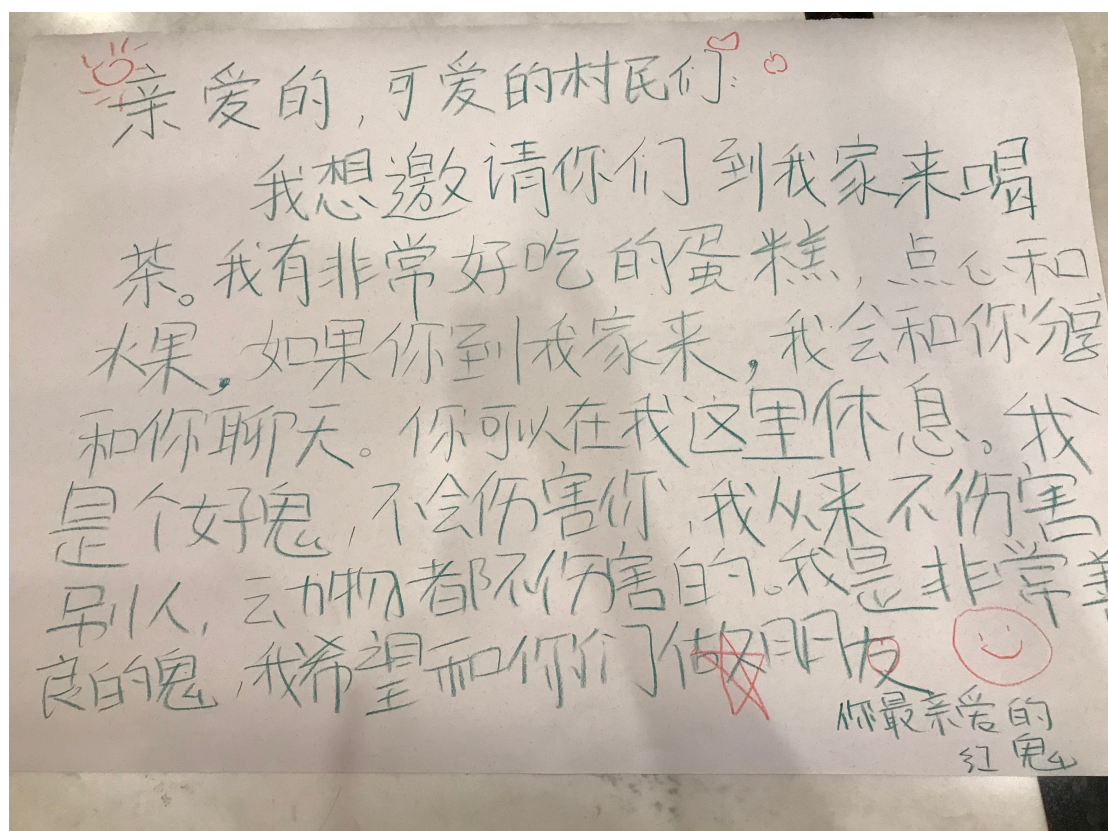 亲爱的，可爱的村民们：
我想邀请你们到我家来喝
茶。我有非常好吃的蛋糕，点心和
水果，如果你到我家来，我会和你分享
和你聊天。你可以在我这里休息。我
是个好鬼，不会伤害你，我从来不伤害
别人，动物都不伤害的。我是非常善
良的鬼，我希望和你们做朋友
你最亲爱的
红鬼